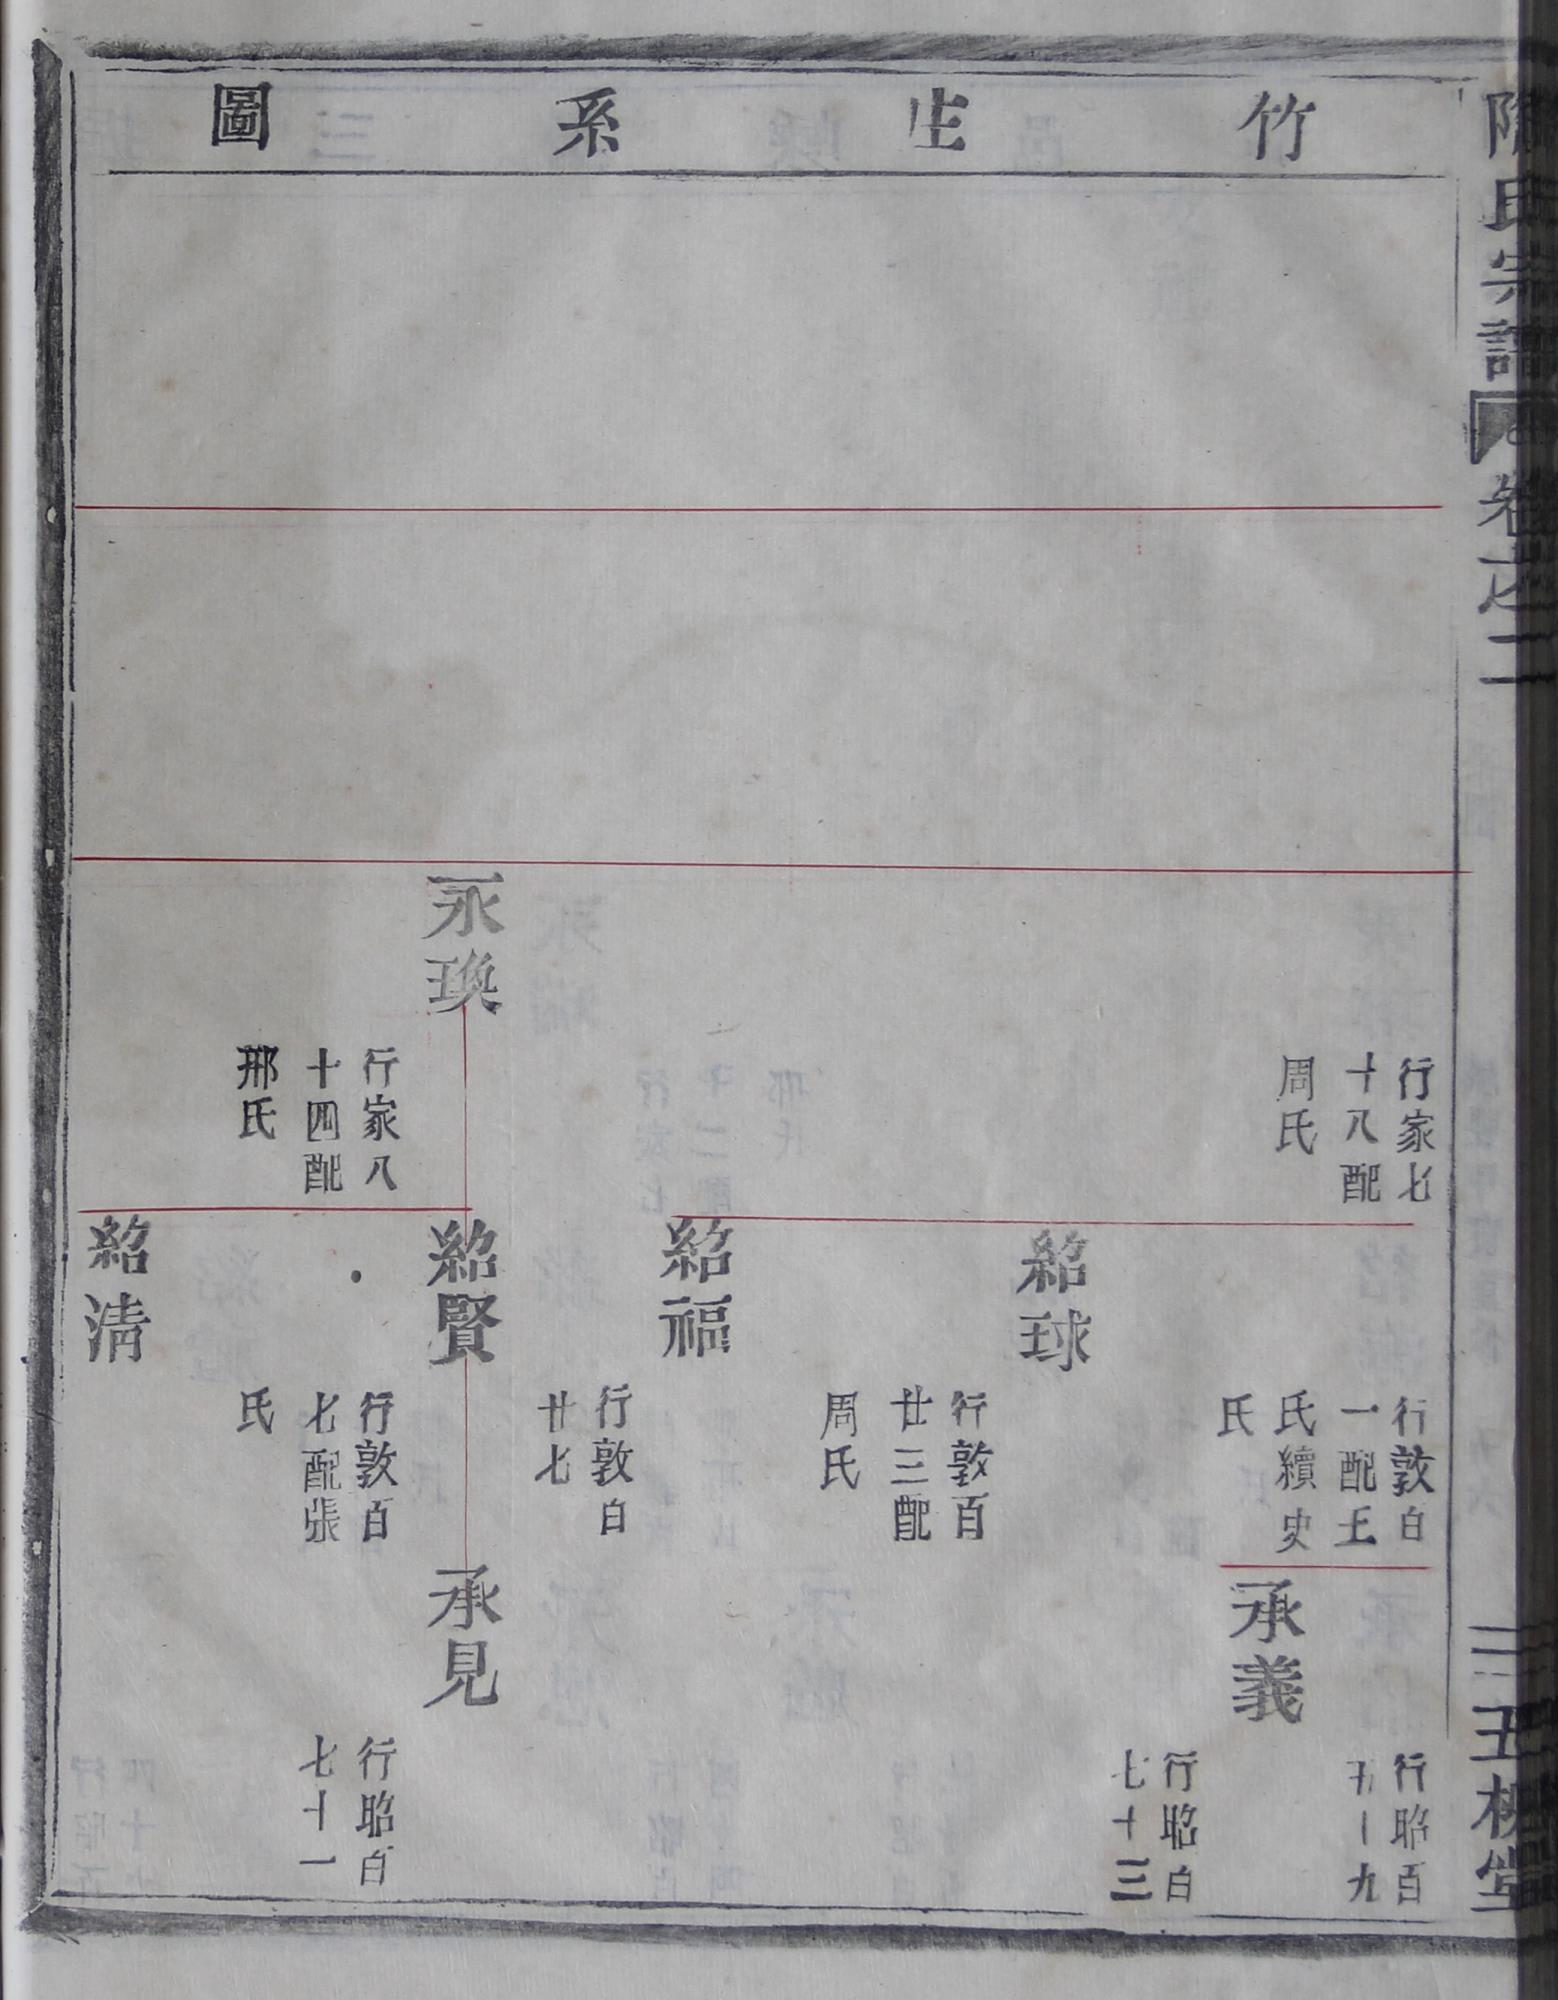 竹生系圖
氏宗譜
卷之二
五柳堂
行家七
十八配
周氏
永瑍
行家八
十四配
邢氏
行敦百
一配王
氏續史
氏
紹球
行敦百
廿三配
周氏
紹福
行敦百
廿七
紹賢
行敦百
七配張
氏
紹清
行昭百
五十九
承義
行昭百
七十三
承見
行昭百
七十一